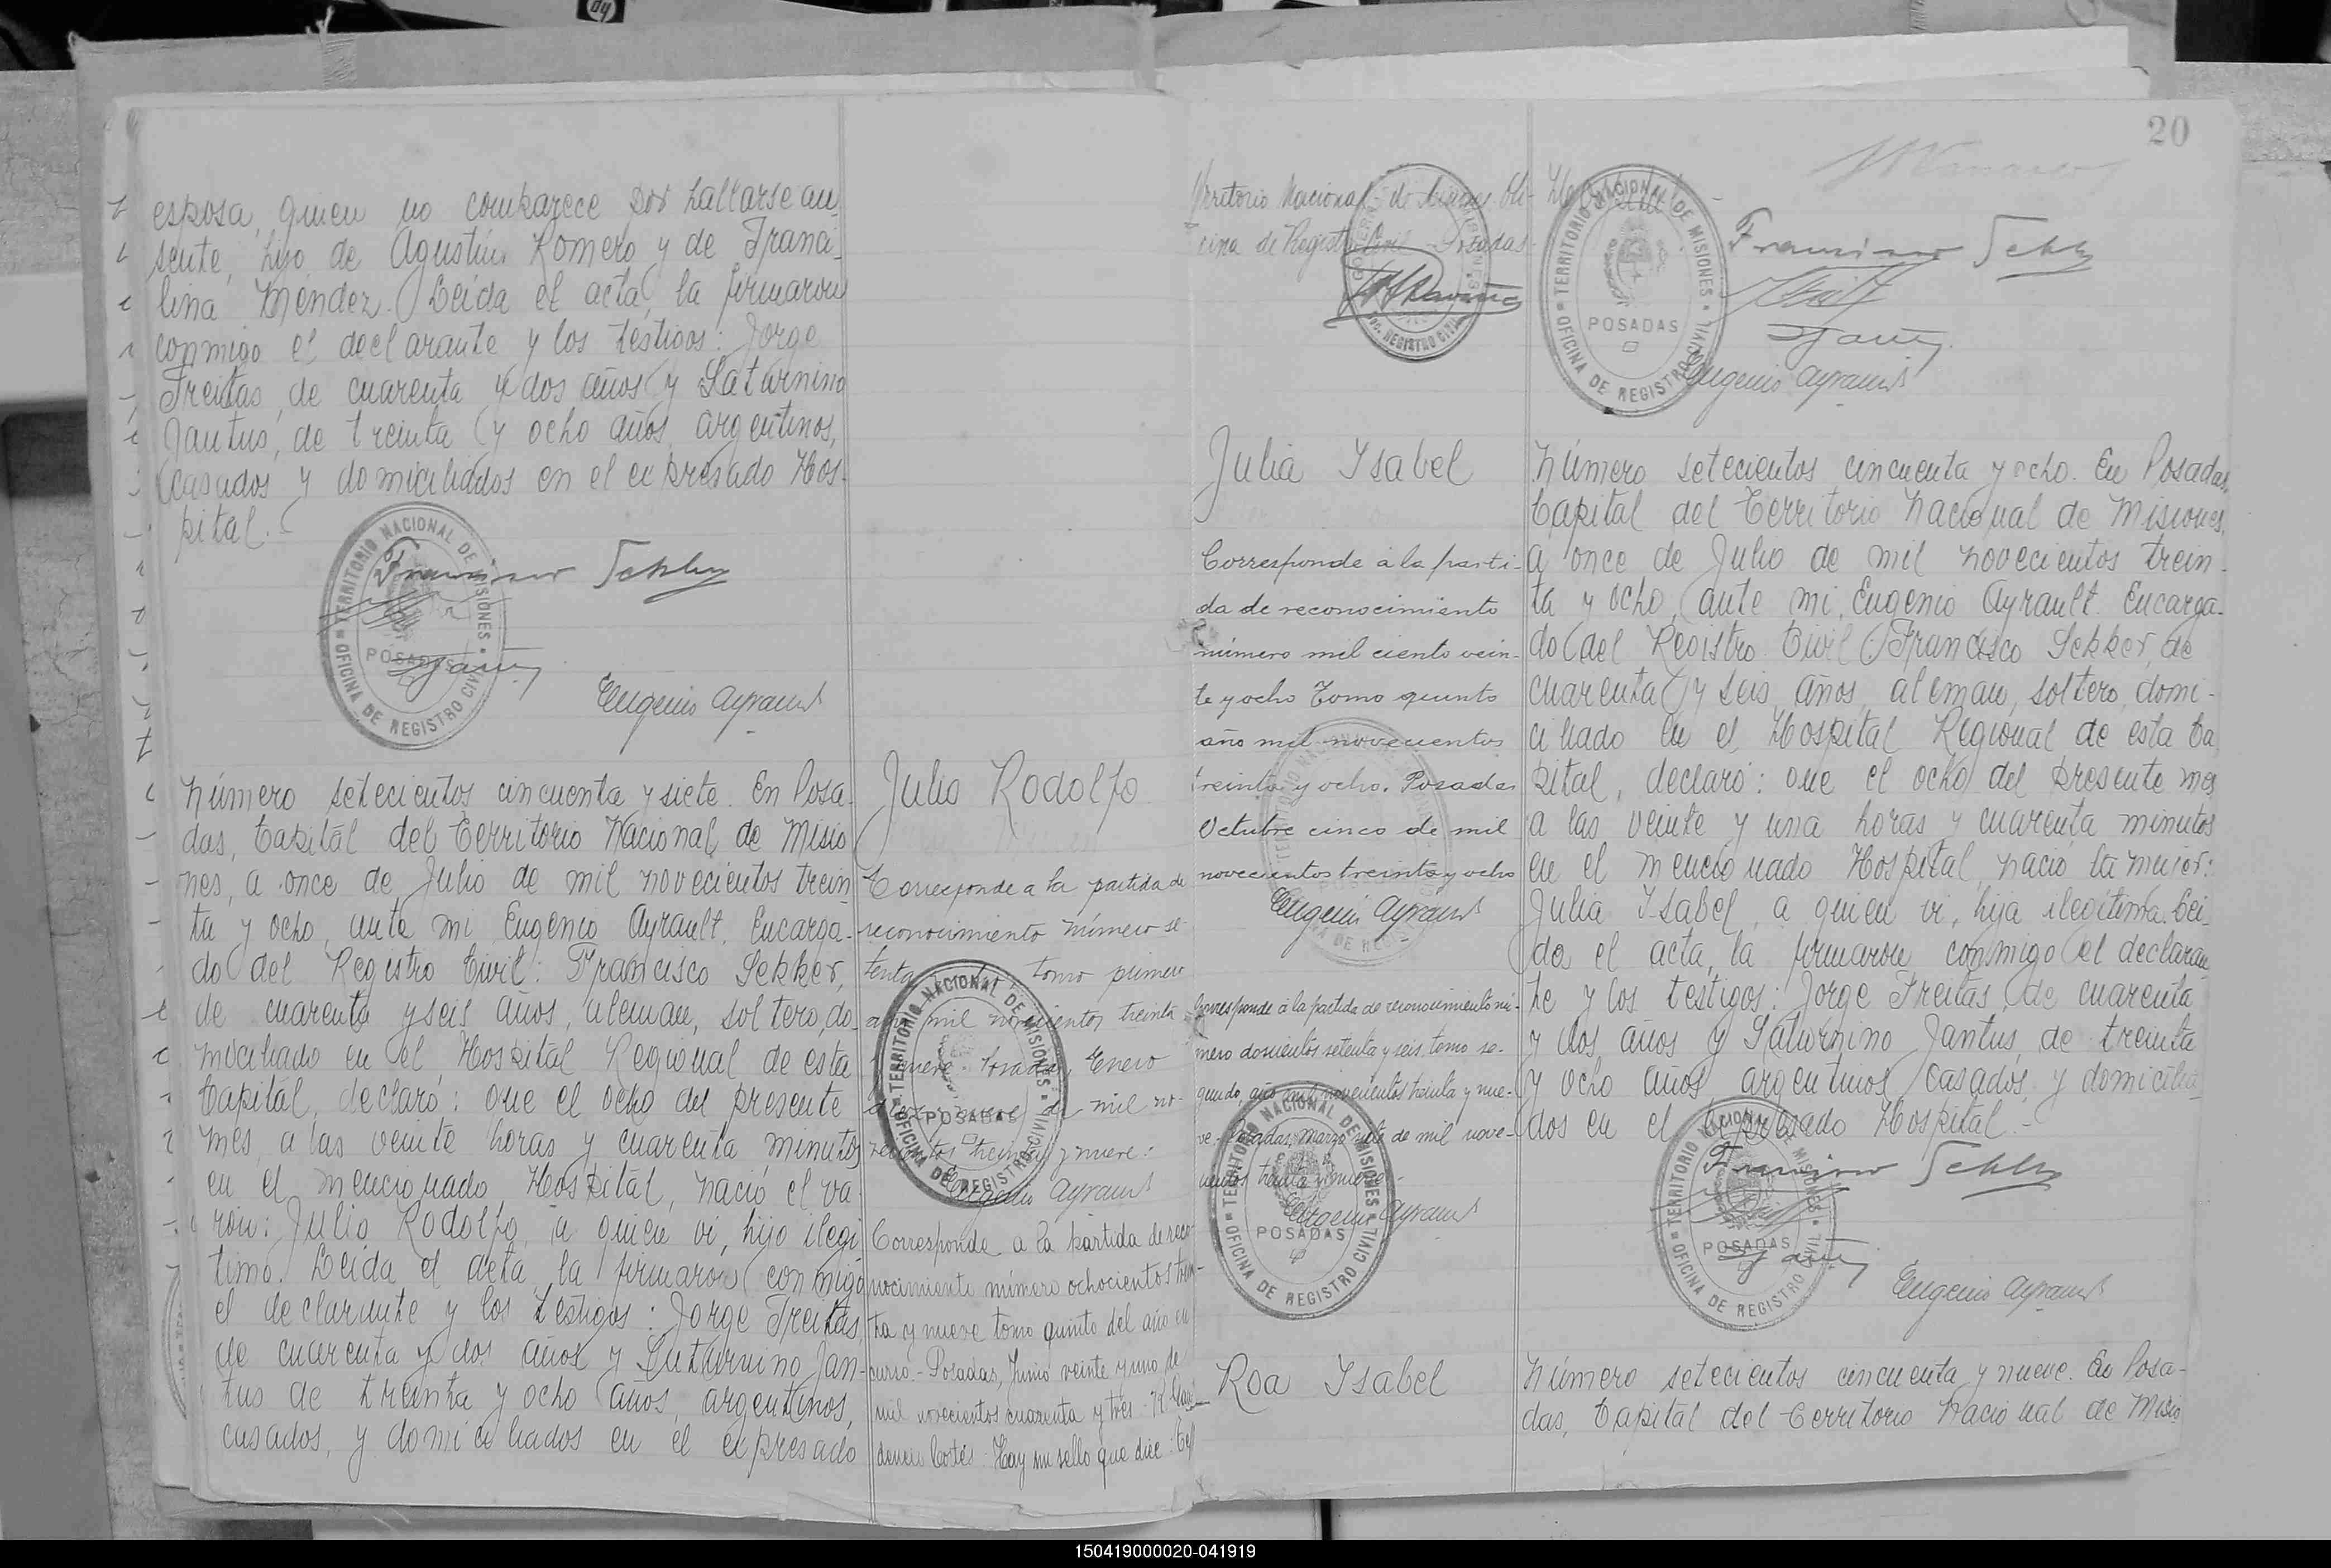 esposa, quien no comparece por hallarse au-
sente, hijo de Agustin Romero y de Franci-
lina Mendez. Leida el acta, la firmaron
conmigo el declarante y los testigos: Jorge
Freitas, de cuarenta y dos años y Saturnino
Jantus, de treinta y ocho años, argentinos,
casados y domiciliados en el expresado Hos-
pital.-
TERRITORIO NACIONAL DE MISIONES
POSADAS
OFICINA DE REGISTRO CIVIL
Eugenio Ayrault
Número setecientos cincuenta y siete. En Posa-
das, Capital del Territorio Nacional de Misio
nes, a once de Julio de mil novecientos trein
ta y ocho, ante mi Eugenio Ayrault, Encarga-
do del Registro Civil: Francisco Sekker,
de cuarenta y seis años, aleman, soltero, do-
miciliado en el Hospital Regional de esta
Capital, declaró: que el ocho del presente
mes, a las veinte horas y cuarenta minutos
en el mencionado Hospital, nació el va-
rón: Julio Rodolfo, a quien vi, hijo ilegi
timo. Leida el acta, la firmaron conmigo
el declarante y los testigos: Jorge Freitas
de cuarenta y dos años y Saturnino Jan-
tus de treinta y ocho años, argentinos,
casados, y domiciliados en el expresado
Julio Rodolfo
Corresponde a la partida de
reconocimiento número se-
tenta tomo primero
año mil novecientos treinta
nueve. Posadas, Enero
de mil no-
vecientos treinta y nueve:
Eugenio Ayrault
TERRITORIO NACIONAL DE MISIONES
POSADAS
OFICINA DE REGISTRO CIVIL
Corresponde a la partida de reco-
nocimiento número ochocientos trein-
ta y nueve tomo quinto del año en
curso.- Posadas, Junio veinte y uno de
mil novecientos cuarenta y tres.
Cortés - Hay un sello que dice: Te
20
rritorio Nacional de Misiones Ofi-
cina de Registro Civil - Posadas-
TERRITORIO NACIONAL DE MISIONES
POSADAS
OFICINA DE REGISTRO CIVIL
Francisco
Eugenio Ayrault
Julia Isabel
Corresponde a la parti-
da de reconocimiento
número mil ciento vein-
te y ocho Tomo quinto
año mil novecientos
treinta y ocho. Posadas
Octubre cinco de mil
novecientos treinta y ocho
Eugenio Ayrault
Corresponde á la partida de reconocimiento nú-
mero doscientos setenta y seis, tomo se-
gundo, año mil novecientos treinta y nue-
ve- Posadas, marzo de mil nove-
cientos treinta y nueve.-
Eugenio Ayrault
TERRITORIO NACIONAL DE MISIONES
POSADAS
OFICINA DE REGISTRO CIVIL
Número setecientos cincuenta y ocho. En Posadas,
Capital del Territorio Nacional de Misiones,
a once de Julio de mil novecientos trein-
ta y ocho, ante mi, Eugenio Ayrault. Encarga-
do del Registro Civil Francisco Sekker, de
cuarenta y seis años, aleman, soltero, domi-
ciliado en el Hospital Regional de esta Ca
pital, declaró: que el ocho del presente mes
a las veinte y una horas y cuarenta minutos
en el mencionado Hospital, nació la mujer:
Julia Isabel, a quien vi, hija ilegítima. Lei-
da el acta, la firmaron conmigo el declaran
te y los testigos: Jorge Freitas, de cuarenta
y dos años y Saturnino Jantus, de treinta
y ocho años, argentinos, casados y domicilia
dos en el expresado Hospital.-
TERRITORIO NACIONAL DE MISIONES
POSADAS
OFICINA DE REGISTRO CIVIL
Francisco
Eugenio Ayrault
Roa Isabel
Número setecientos cincuenta y nueve. En Posa-
das, Capital del Territorio Nacional de Misio
150419000020-041919